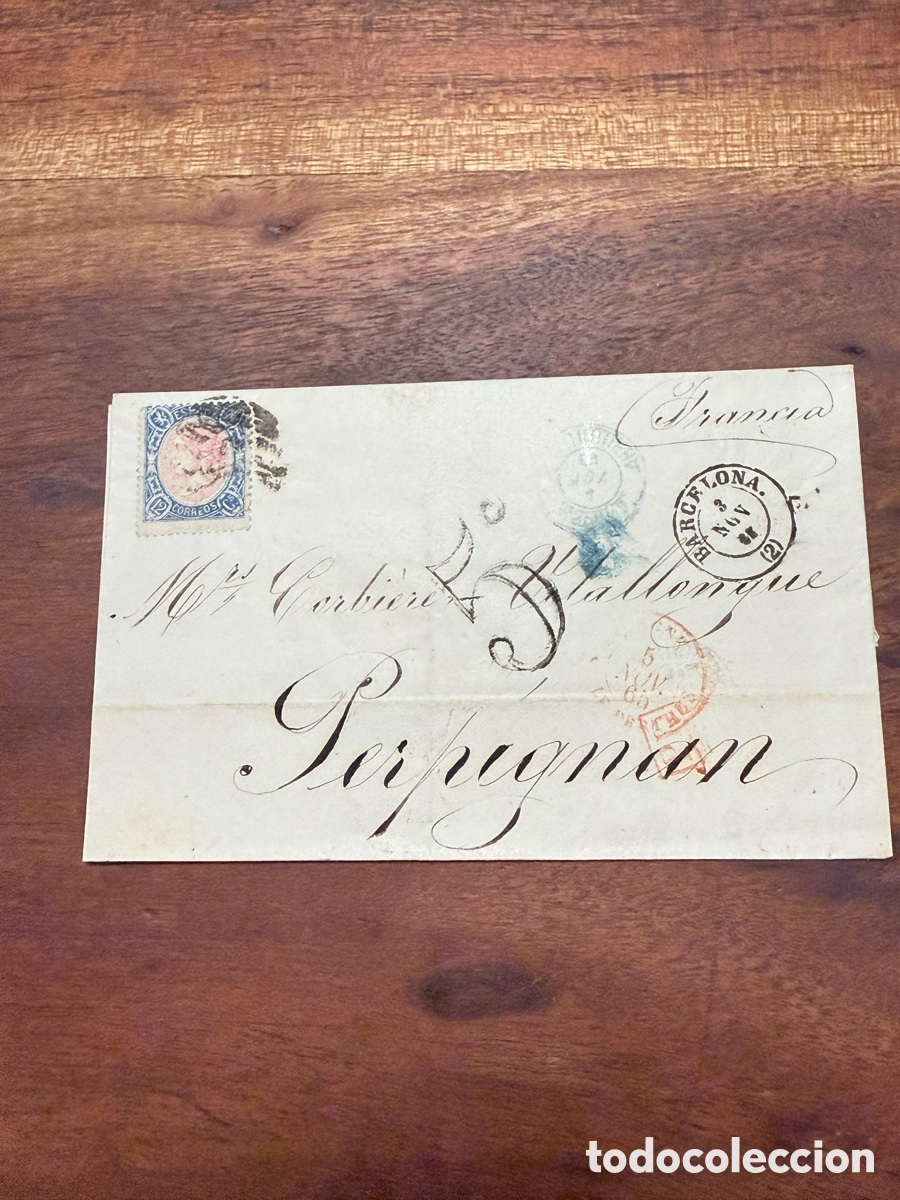 Francia
12 CORREOS Cs
BARCELONA.
3
NOV
65
(2)
5
Mrs Corbière
Perpignan
5
NOV.
65
todocoleccion